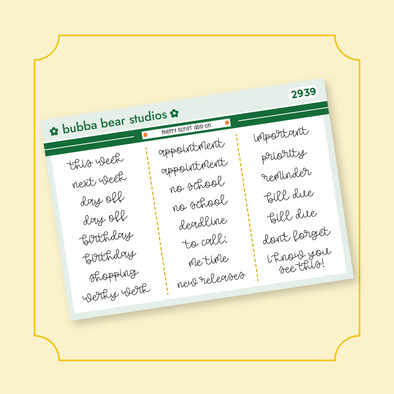 bubba bear studios
2939
pretty script add-on
this week
next week
day off
day off
birthday
birthday
shopping
werky werk
appointment
appointment
no school
no school
deadline
to call:
me time
new releases
important
priority
reminder
bill due
bill due
don't forget
i know you
see this!